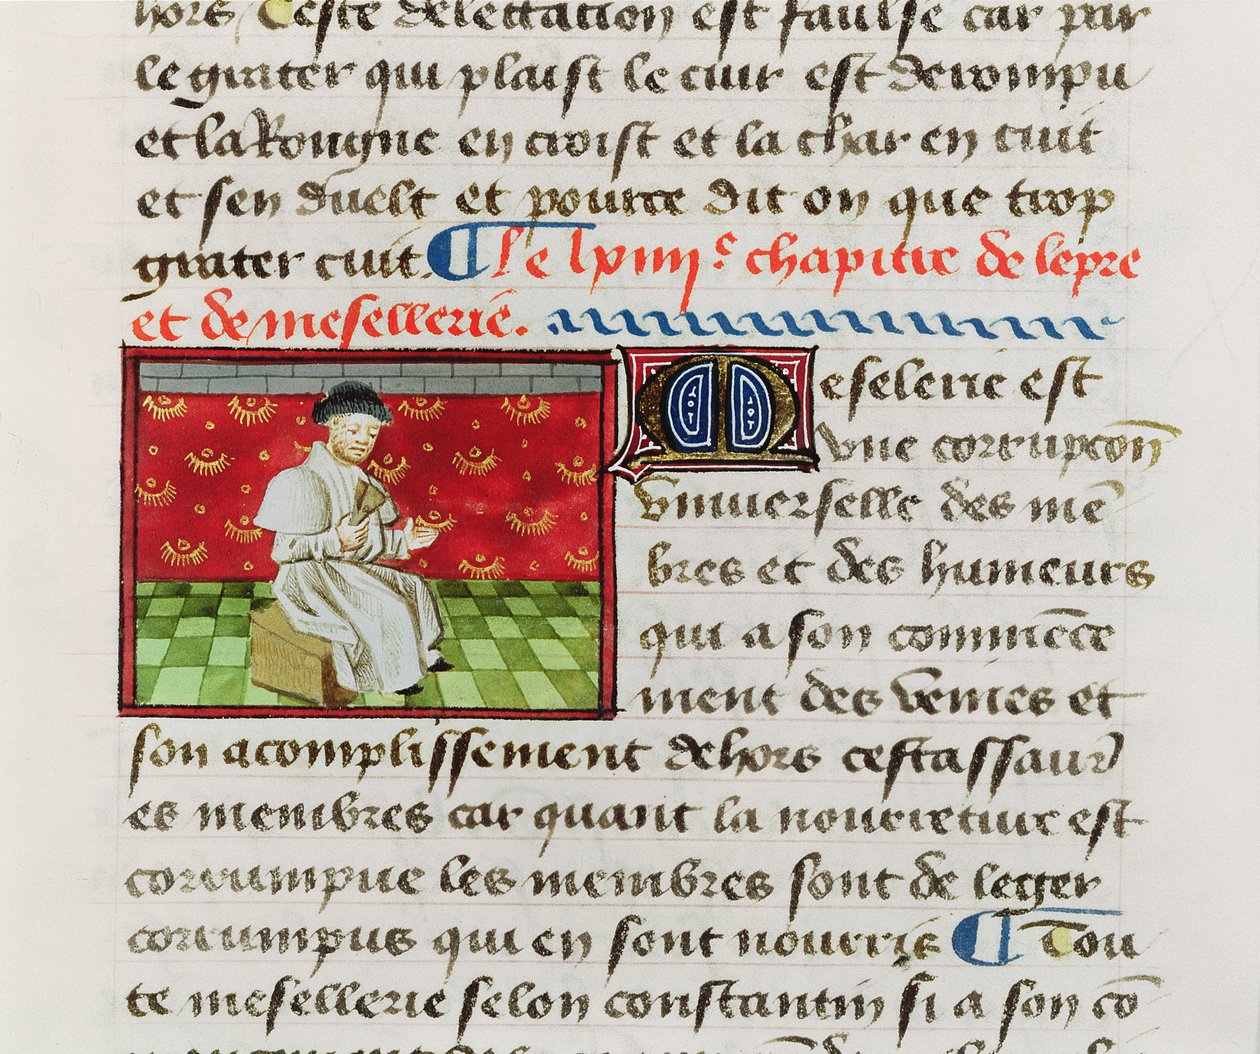 hors. Ceste delectation est faulse car par
le grater qui plaist le cuir est derompu
et la Rongne en croist et la char en cuit
et sen duelt et pource dit on que trop
grater cuit. ¶ Le lxiiii^e chapitre de lepre
et de mesellerie.
Meselerie est
vne corrupcōn
vniuerselle des mē
bres et des humeurs
qui a son commēce
ment des venies et
son acomplissement dehors cestassauͬ
es membres car quant la nourreture est
corrumpue les membres sont de leger
corrumpus qui en sont nourris ¶ Tou
te mesellerie selon constantin si a son cō